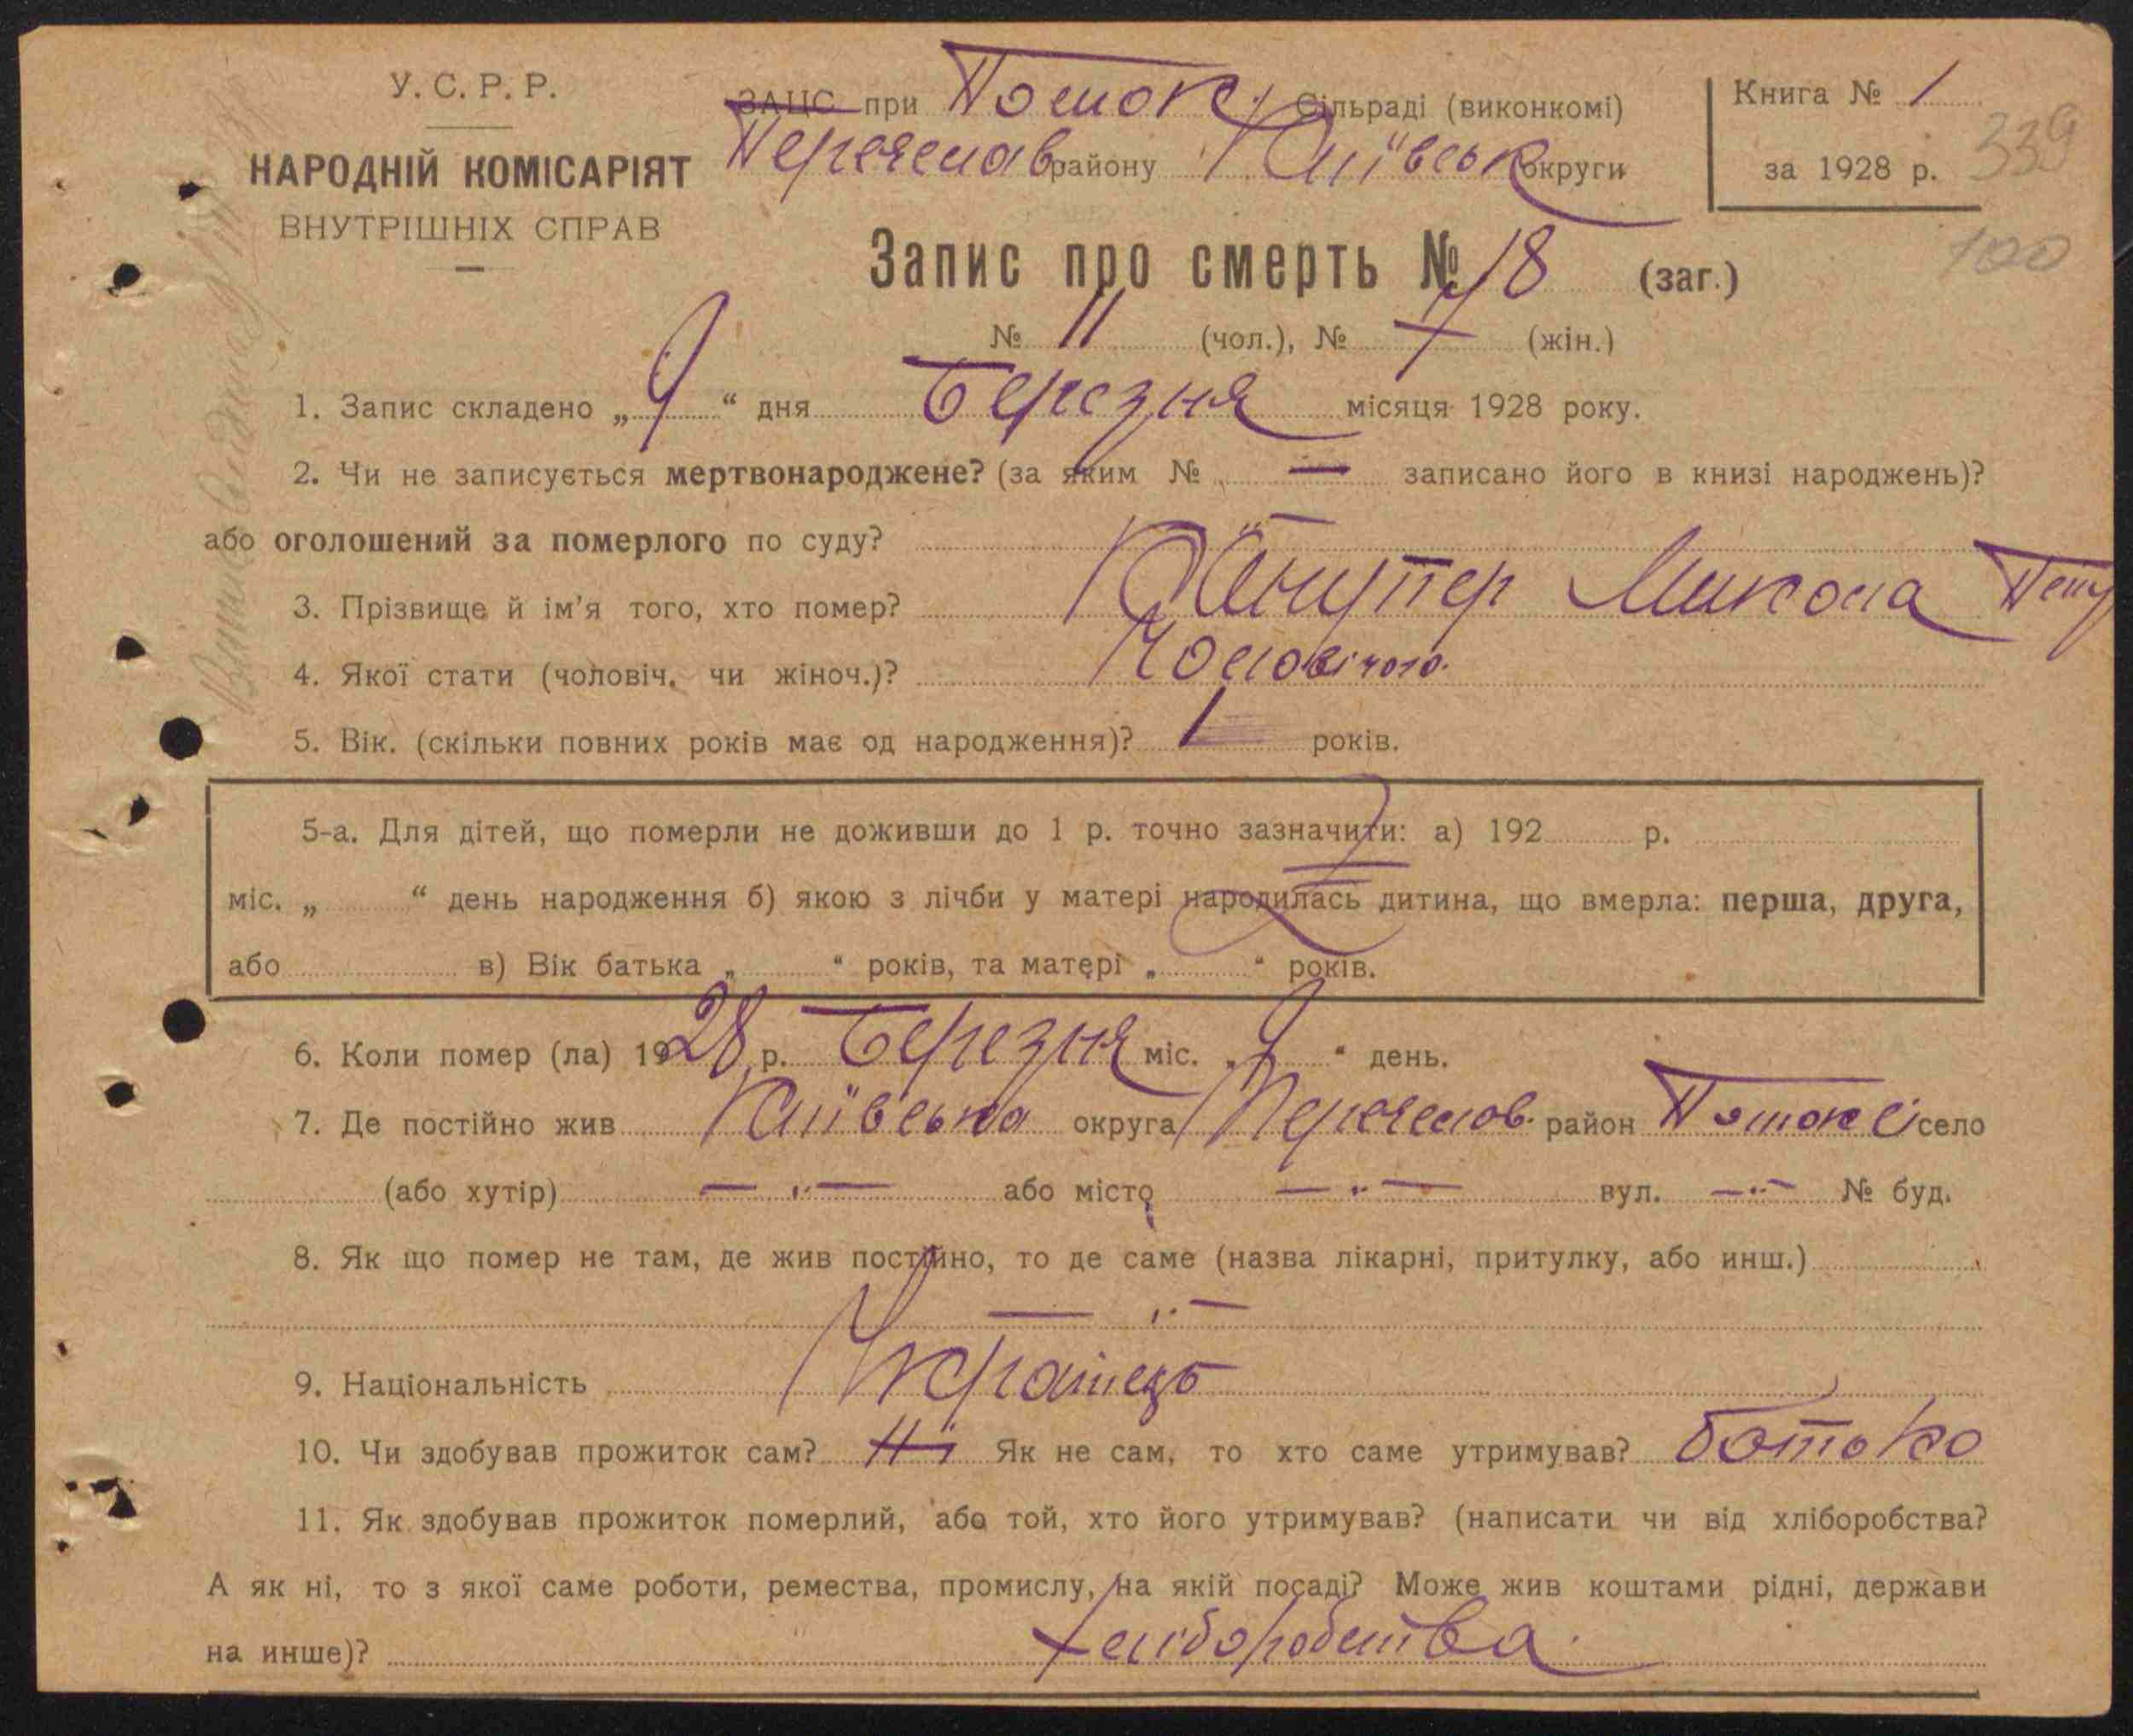 У. С. Р. Р.
НАРОДНІЙ КОМІСАРІЯТ
ВНУТРІШНІХ СПРАВ
ЗАЦС при Поток. Сільраді (виконкомі)
Переяслав району Київськ округи
Книга № 1
за 1928 р.
339
100
Запис про смерть № 18 (заг.)
№ 11 (чол.), № 7 (жін.)
1. Запис складено „ 9 “ дня Березня місяця 1928 року.
2. Чи не записується мертвонароджене? (за яким № — записано його в книзі народжень)?
або оголошений за померлого по суду?
3. Прізвище й ім’я того, хто помер? Микола
4. Якої стати (чоловіч. чи жіноч.)? Чоловічого.
5. Вік. (скільки повних років має од народження)? 1 років.
5-а. Для дітей, що померли не доживши до 1 р. точно зазначити: а) 192 р.
міс. „ “ день народження б) якою з лічби у матері народилась дитина, що вмерла: перша, друга,
або в) Вік батька „ “ років, та матері „ “ років.
6. Коли помер (ла) 1928 р. Березня міс. „ 9 “ день.
7. Де постійно жив Київська округа Переяслов. район Потоки село
(або хутір) — „ — або місто — „ — вул. — „ — № буд.
8. Як що помер не там, де жив постійно, то де саме (назва лікарні, притулку, або инш.)
— „ —
9. Національність Українець
10. Чи здобував прожиток сам? Ні Як не сам, то хто саме утримував? батько
11. Як здобував прожиток померлий, або той, хто його утримував? (написати чи від хліборобства?
А як ні, то з якої саме роботи, ремества, промислу, на якій посаді? Може жив коштами рідні, держави
на инше)? хліборобства.